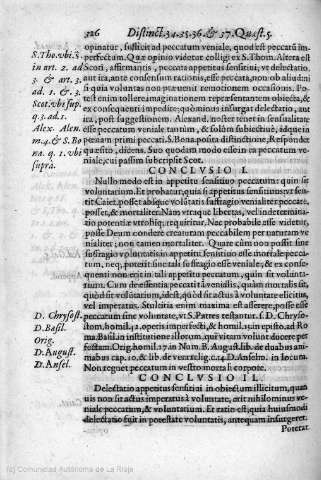 326 Distinct. 34. 35. 36. & 37. Quæst. 5.
opinatur, sufficit ad peccatum veniale, quod est peccatū im-
perfectum. Quæ opinio videtur colligi ex S. Thom. Altera est
Scoti, affirmantis, peccata appetitus sensitiui, vt delectatio,
aut ira, ante consensum rationis, esse peccata, non ob aliud nisi
quia voluntas non præuenit remotionem occasionis. Po-
test enim tollere imaginationem repræsentantem obiecta, &
ex consequenti impedire: quominus insurgat delectatio, aut
ira, post suggestionem. Alexand. noster tenet in sensualitate
esse peccatum veniale tantùm, & solùm subiectiuè, idque in
pœnam primi peccati. S. Bona. posita distinctione, Respondet
quæstiō, dicēs. Suo quodam modo esse in ea peccatum ve-
niale, cui passim subscripsit Scot.
CONCLVSIO I.
Nullo modo est in appetitu sensitiuo peccatum: quin sit
voluntarium. Et probatur, quia si appetitus sensitiuus vt sen-
tit Caiet. posset absque volūtatis suffragio venialiter peccare,
posset, & mortaliter. Nam vtraque libertas, vel indetermina-
tio potentiæ vtrobiq; requiritur. Nec probabile esse videtur,
posse Deum condere creaturam peccabilem per naturam ve-
nialiter; non tamen mortaliter. Quare cùm non possit sine
suffragio voluntatis in appetitu sensitiuo esse mortale pecca-
tum, neq; poterit sine tali suffragio esse veniale, & ex conse-
quenti non erit in tali appetitu peccatum, quin sit volunta-
rium. Cum de essentia peccati tā venialis, quàm mortalis sit,
quòd sit volūtarium, idest, quòd sit actus à voluntate elicitus,
vel imperatus. Stultitia enim maxima est asserere, posse esse
peccatum sine voluntate, vt S. Patres testantur. s. D. Chryso-
stom. homil. 42. operis imperfecti, & homil. 13. in epistō. ad Ro
ma. Basil. in institutione illorum, qui vitam volunt ducere per
fectam. Orig. homil. 27. in Num. B. August. lib. de duabus ani-
mabus cap. 10. & lib. de vera relig. c. 14. D. Anselm. in locum.
Non regnet peccatum in vestro mortali corpore.
CONCLVSIO II.
Delectatio appetitus sensitiui in obiectum illicitum, quan
uis non sit actus imperatus à voluntate, erit nihilominus ve-
niale peccatum, & voluntarium. Et ratio est, quia huiusmodi
delectatio fuit in potestate voluntatis, antequam insurgeret.
Poterat
S. Tho. vbi s.
in art. 2. ad
3. & art. 3.
ad 1. & 3.
Scot. vbi sup.
q. 3. ad. 1.
Alex. Alen.
m. 4. & S. Bo
na. q. 1. vbi
suprà.
D. Chrysost.
D. Basil.
Orig.
D. August.
D. Ansel.
(c) Comunidad Autónoma de La Rioja